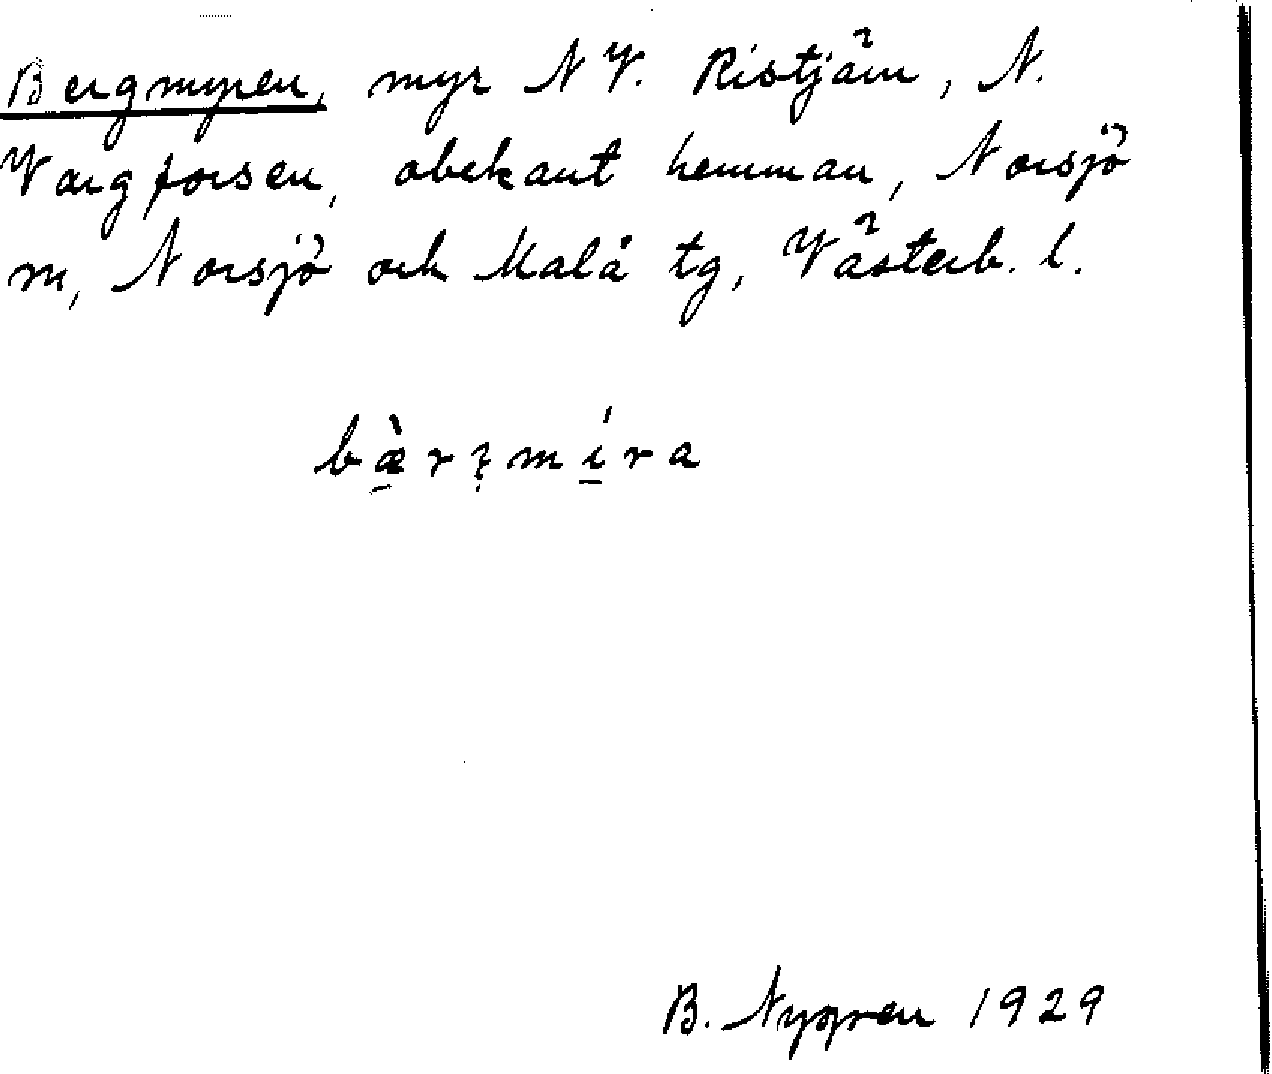 Bergmyren, myr NV. Ristjärn, N.
Vargforsen, obekant hemman, Norsjö
m, Norsjö och Malå tg, Västerb. l.
B. Nygren 1929